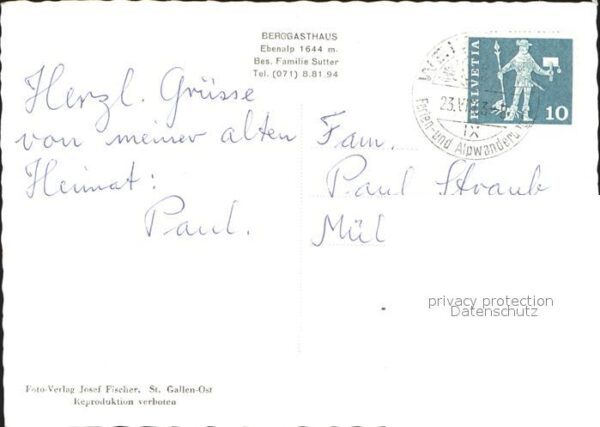 BERGGASTHAUS
Ebenalp 1644 m.
Bes. Familie Sutter
Tel. (071) 8.81.94
HELVETIA
10
23.VI
IX
Ferien- und Alpwander
Herzl. Grüsse
von meiner alten
Heimat:
Paul.
Fam.
Paul Straub
Mül
privacy protection
Datenschutz
Foto-Verlag Josef Fischer, St. Gallen-Ost
Reproduktion verboten